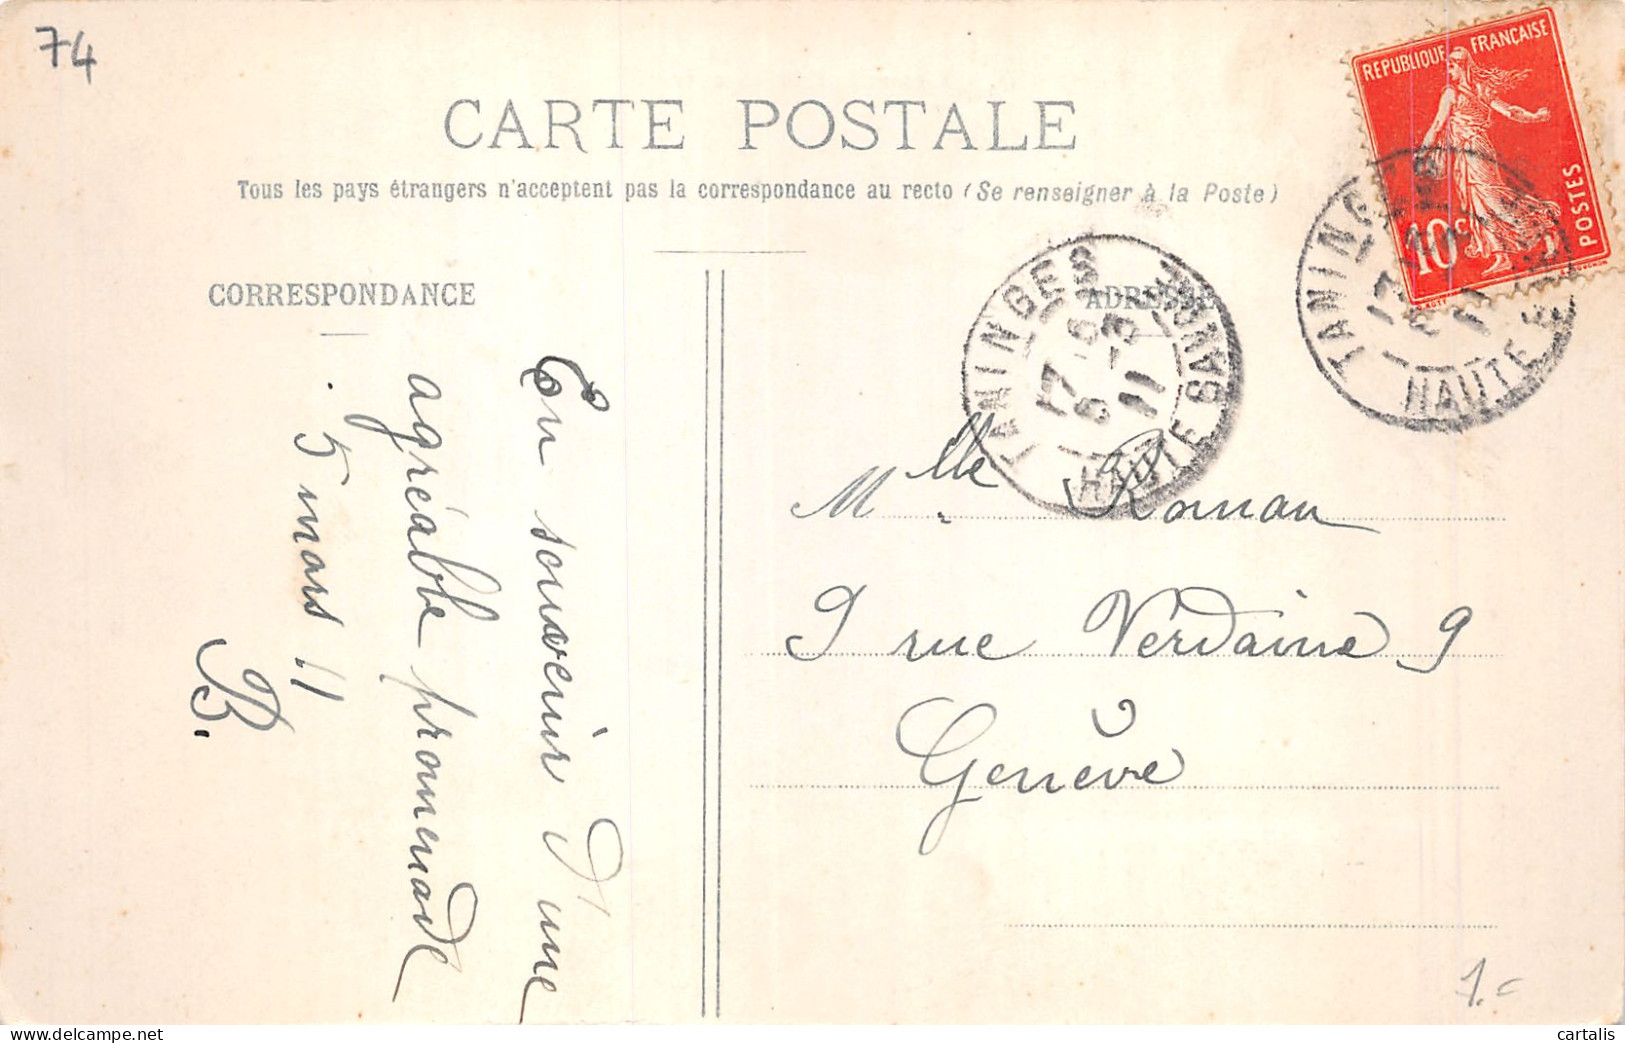 74
CARTE POSTALE
Tous les pays étrangers n'acceptent pas la correspondance au recto (Se renseigner à la Poste)
REPUBLIQUE FRANÇAISE
10c
POSTES
TANINGES
HAUTE
CORRESPONDANCE
ADRESSE
TANINGES
17-5
5-3
11
HAUTE SAVOIE
En souvenir d'une
agréable promenade
. 5 mars 11
B.
Mlle Roman
9 rue Verdaine 9
Genève
1.-
cartalis